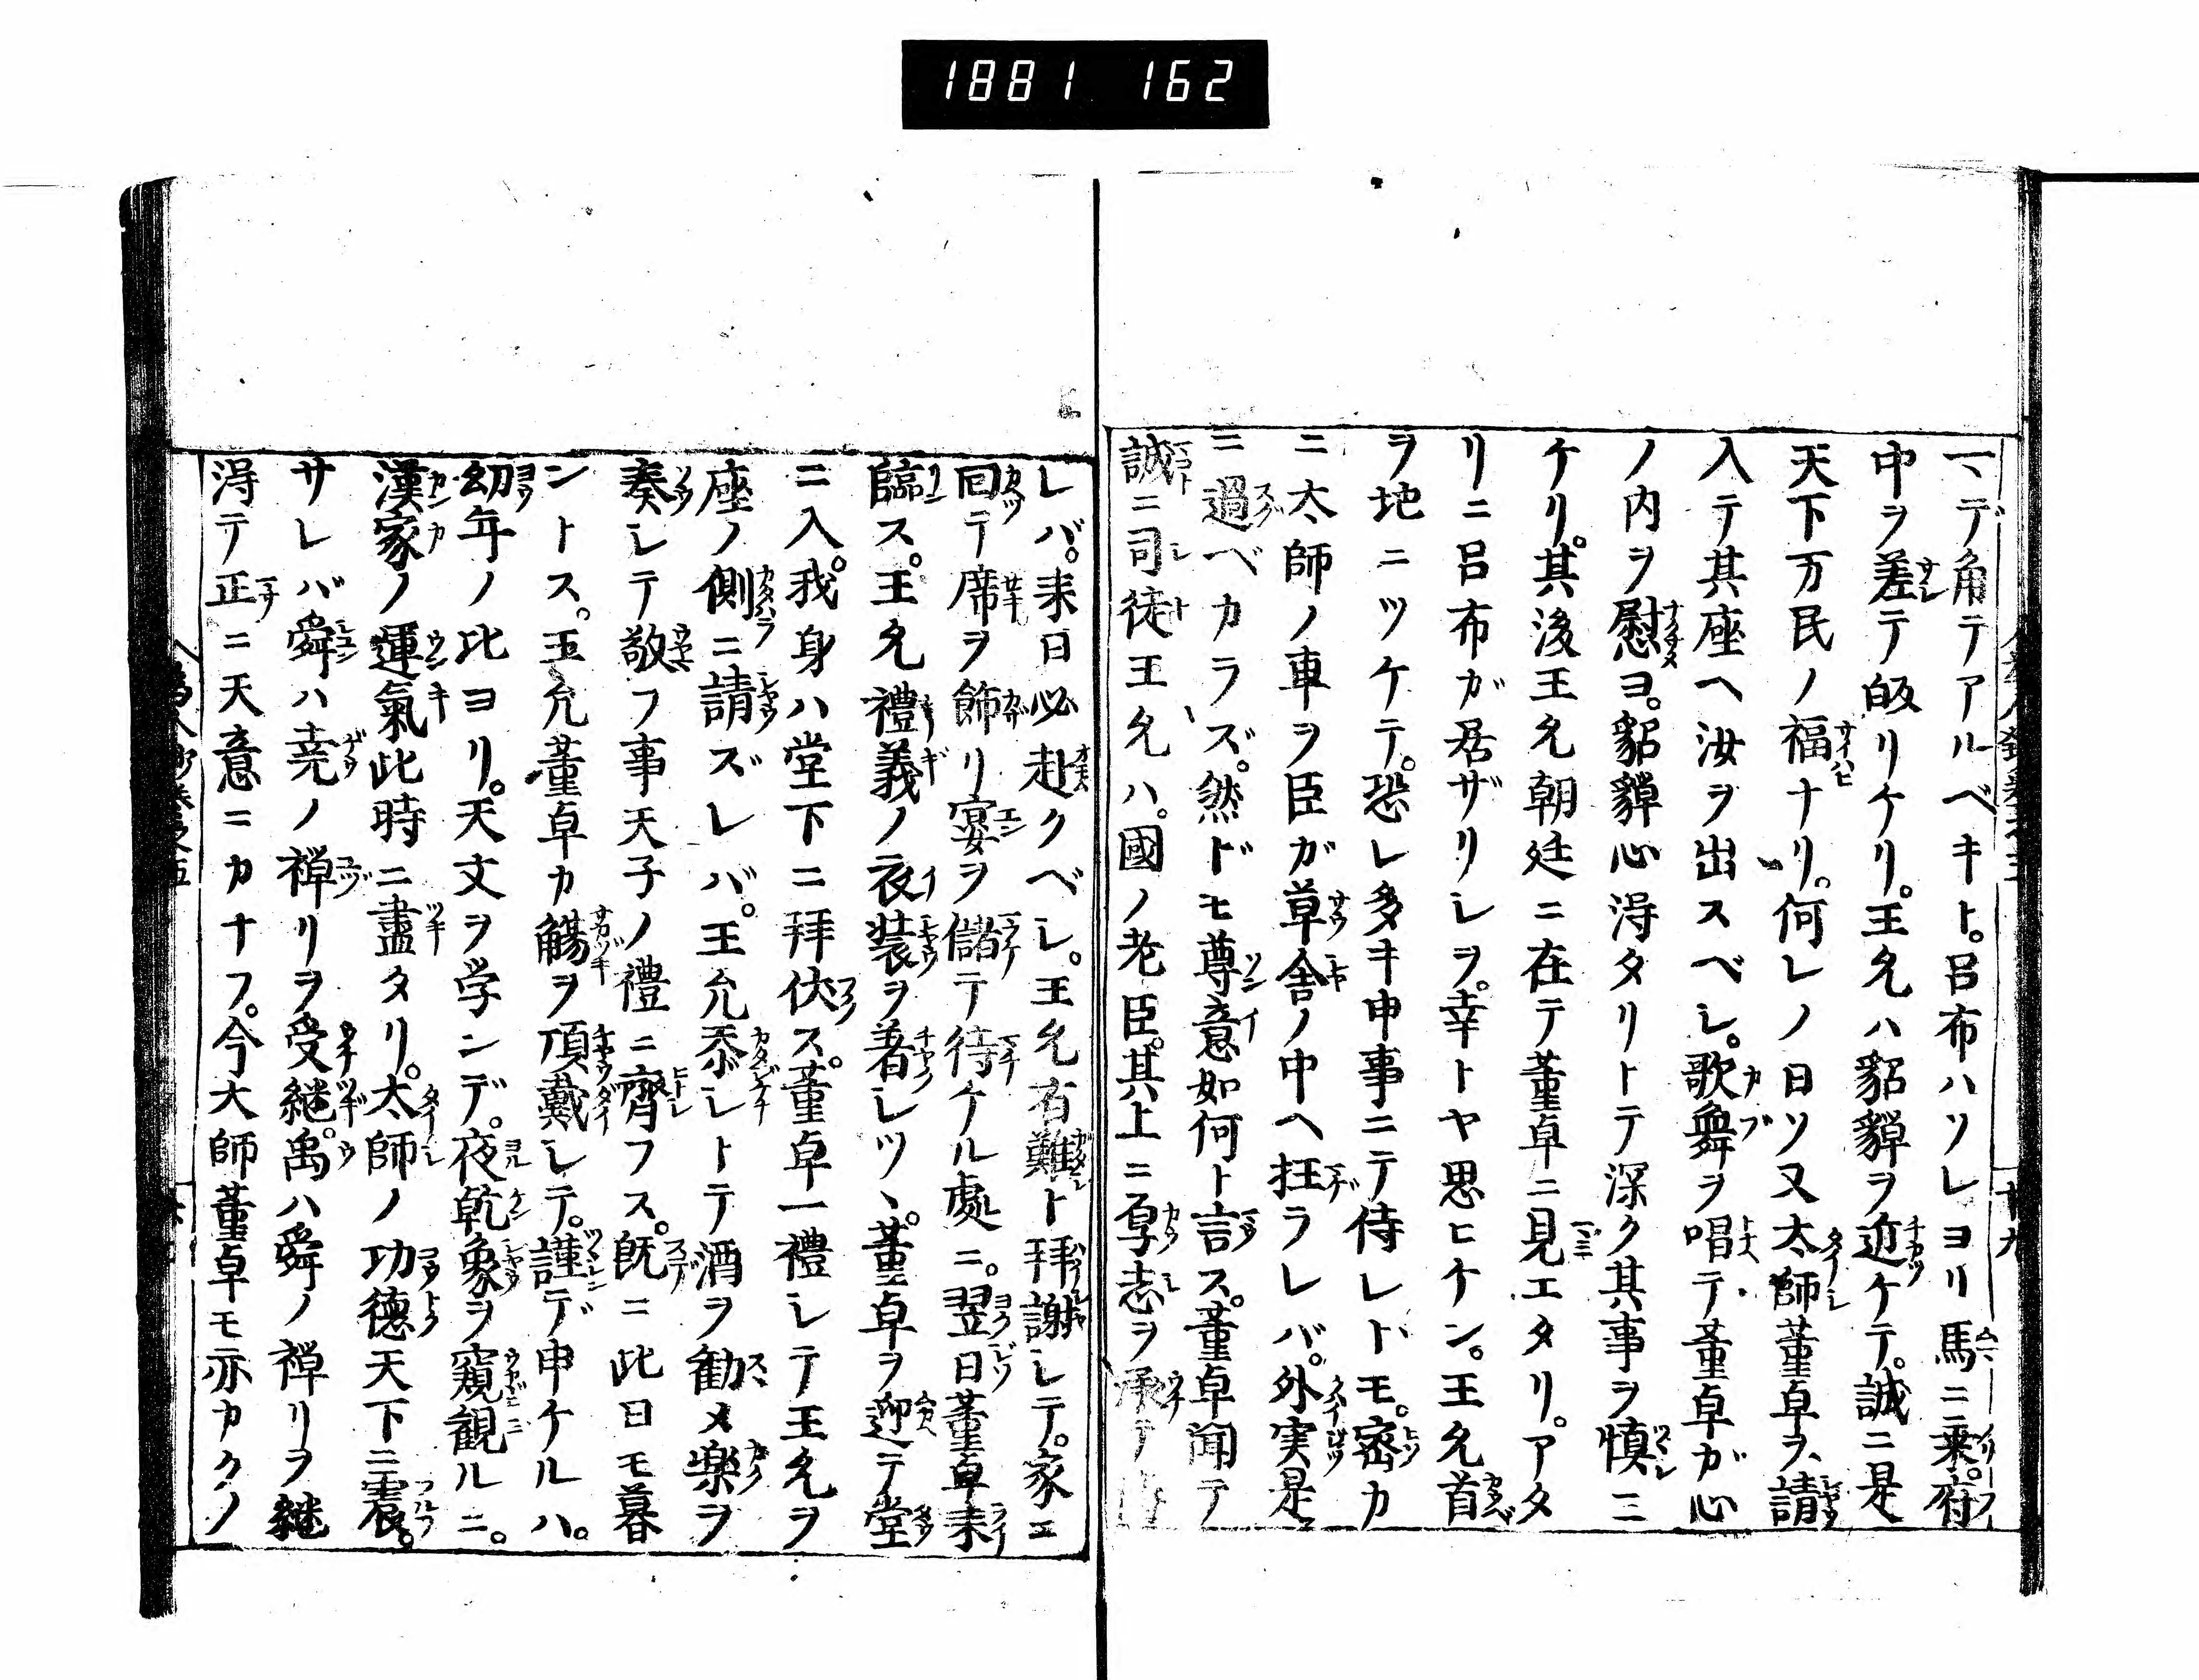 1881 162
一デ角テアルベキト。呂布ハソレヨリ馬ニ乗。府
中ヲ差テ皈リケリ。王允ハ貂蟬ヲ近ケテ。誠ニ是
天下万民ノ福ナリ。何レノ日ソ又太師董卓ヲ請
入テ其座ヘ汝ヲ出スベシ。歌舞ヲ唱テ董卓ガ心
ノ内ヲ慰ヨ。貂蟬心得タリトテ深ク其事ヲ慎ミ
ケリ。其後王允朝廷ニ在テ董卓ニ見エタリ。アタ
リニ呂布ガ居ザリシヲ。幸トヤ思ヒケン。王允首
ヲ地ニツケテ。恐レ多キ申事ニテ侍レドモ。密カ
ニ太師ノ車ヲ臣ガ草舎ノ中ヘ抂ラレバ。外実是
ニ過ベカラズ。然ドモ尊意如何ト言ス。董卓聞テ
誠ニ司徒王允ハ。國ノ老臣。其上ニ厚志ヲ承テ
レバ。来日必赴クベシ。王允有難ト拜謝シテ。家エ
回テ席ヲ飾リ宴ヲ儲テ待ケル處ニ。翌日董卓来
臨ス。王允禮義ノ衣装ヲ着シツヽ。董卓ヲ迎テ堂
ニ入。我身ハ堂下ニ拜伏ス。董卓一禮シテ王允ヲ
座ノ側ニ請ズレバ。王允忝シトテ酒ヲ勧メ楽ヲ
奏シテ敬フ事天子ノ禮ニ齊フス。既ニ此日モ暮
ントス。王允董卓カ觴ヲ頂戴シテ。謹デ申ケルハ。
幼年ノ比ヨリ。天文ヲ学ンデ。夜乾象ヲ窺観ルニ。
漢家ノ運氣此時ニ盡タリ。太師ノ功徳天下ニ震。
サレバ舜ハ尭ノ禅リヲ受継。禹ハ舜ノ禅リヲ継
得テ正ニ天意ニカナフ。今大師董卓モ亦カクノ